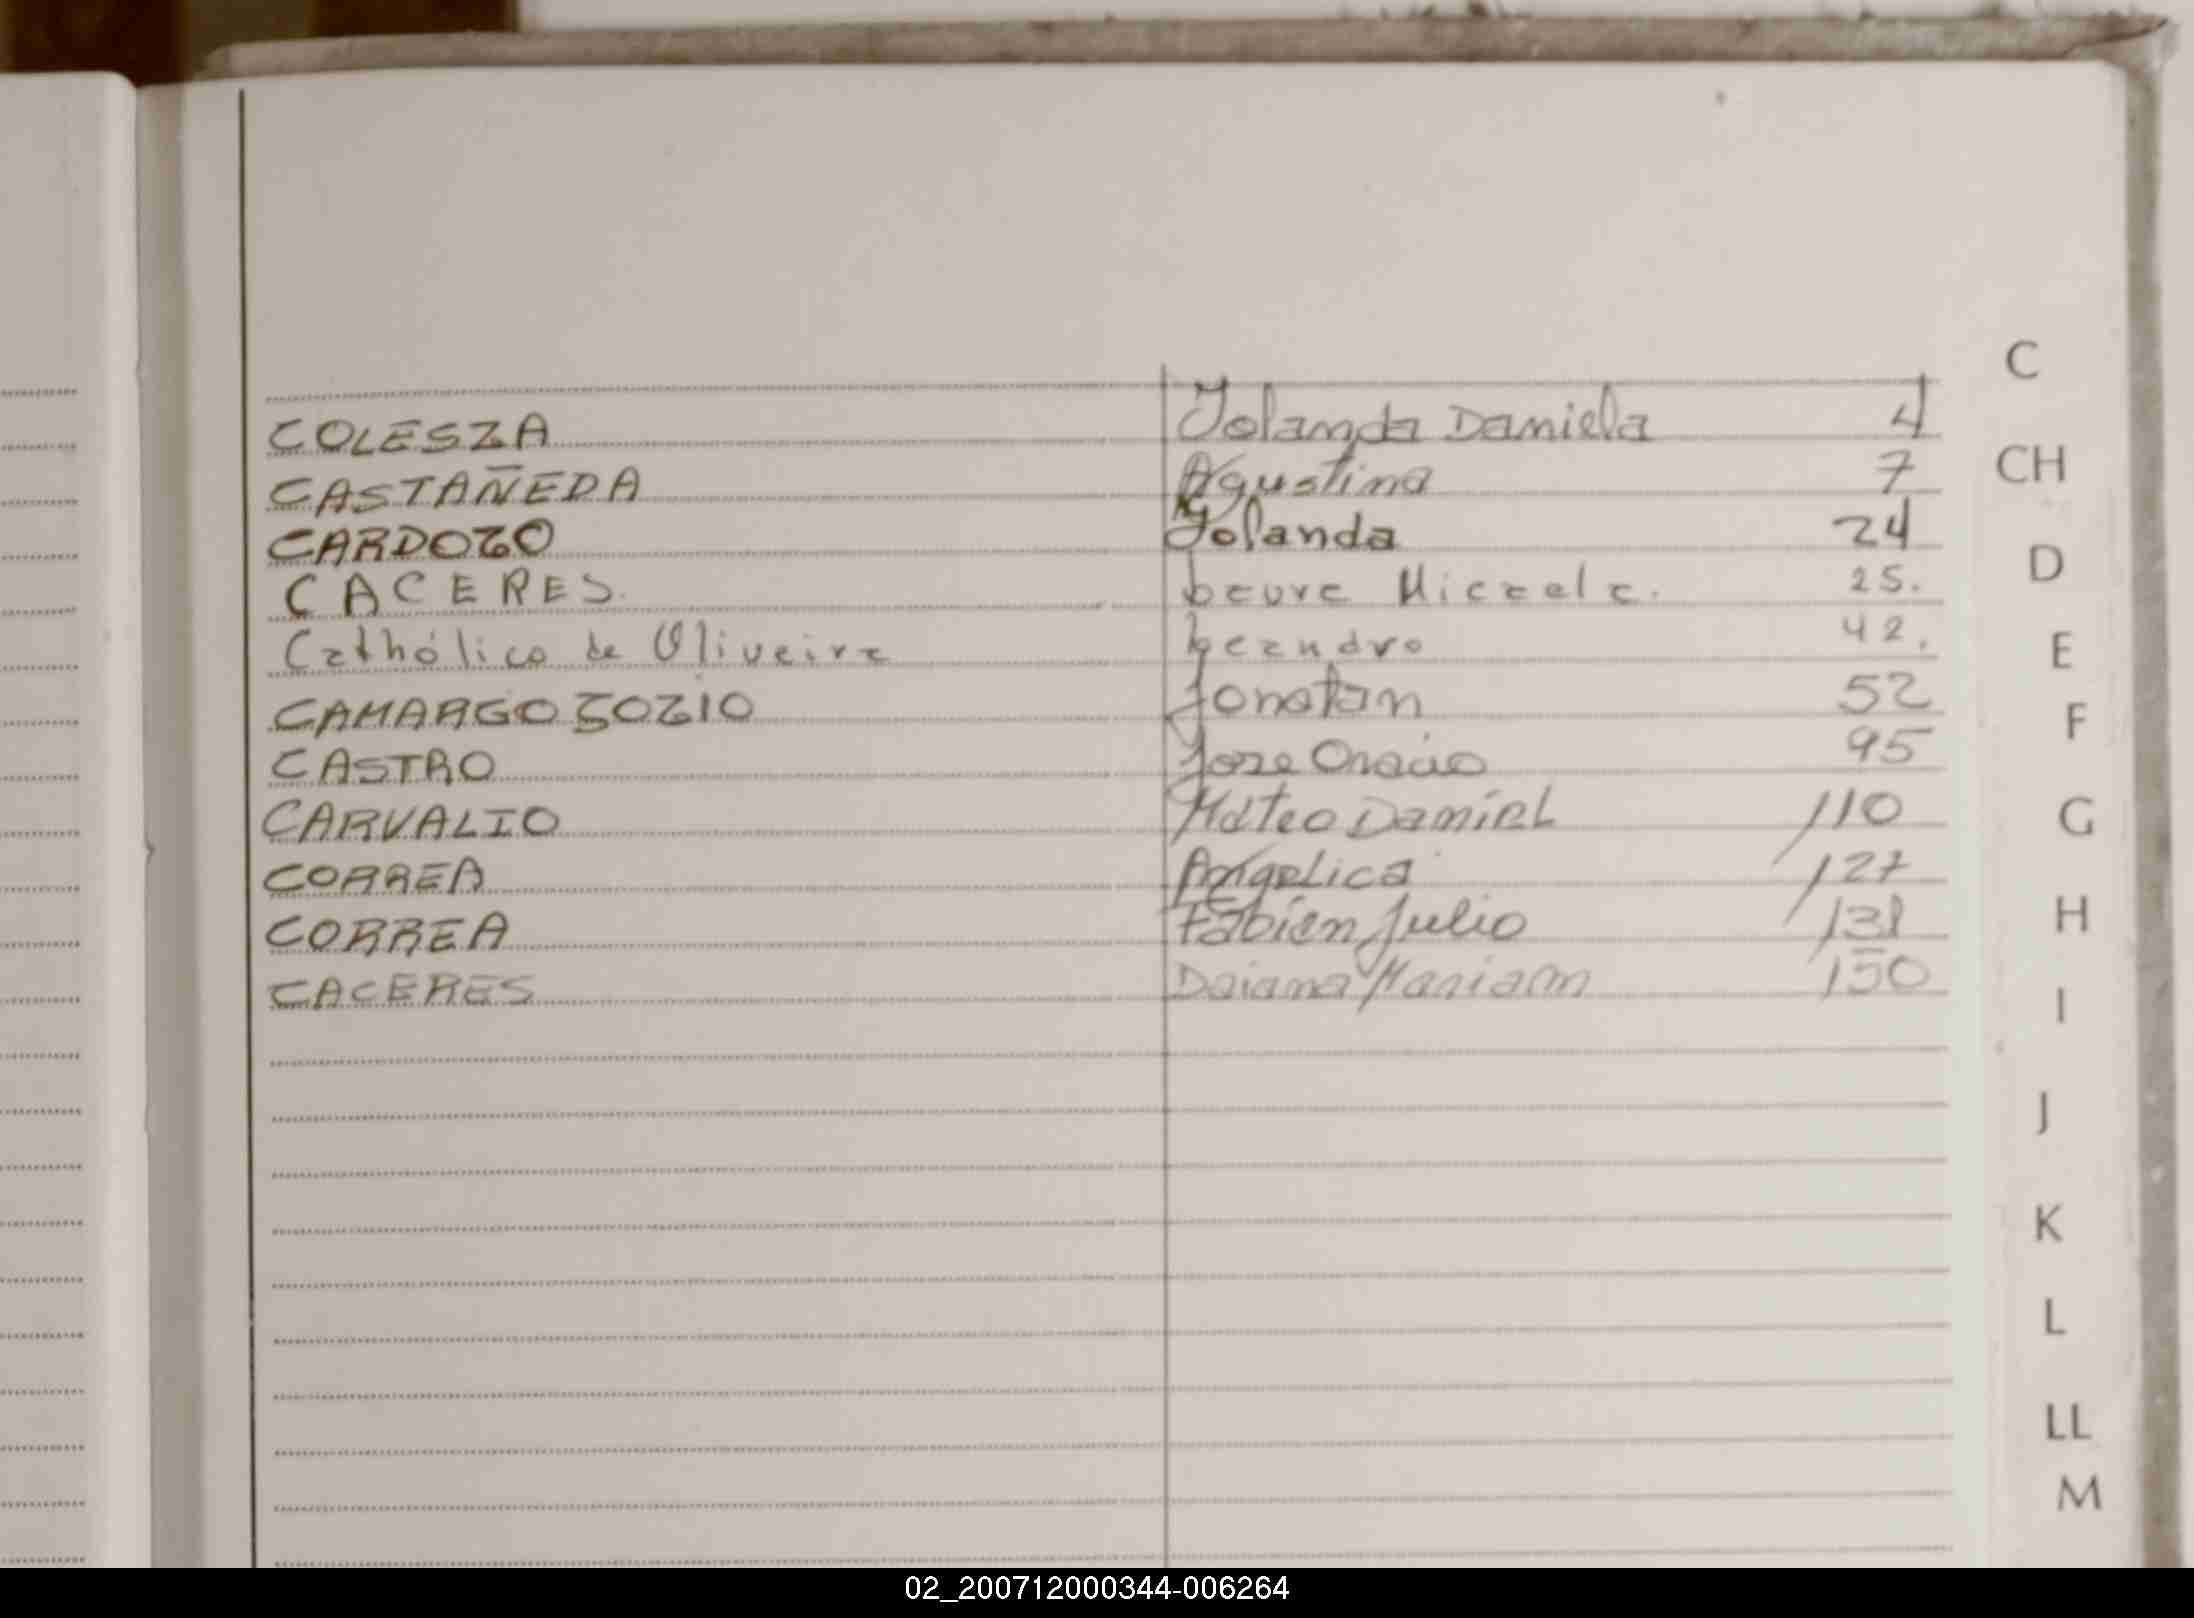 C
COLESZA Yolanda Daniela 4
CASTAÑEDA Agustina 7
CH
CARDOZO Yolanda 24
D
CACERES. Laura Micaela. 25.
Cathólico de Oliveira Leandro 42.
E
CAMARGO ZOZIO Jonatan 52
F
CASTRO Jose Oracio 95
CARVALIO Mateo Daniel 110
G
CORREA Angelica 127
CORREA Fabian Julio 131
H
CACERES Daiana Mariam 150
I
J
K
L
LL
M
02_200712000344-006264